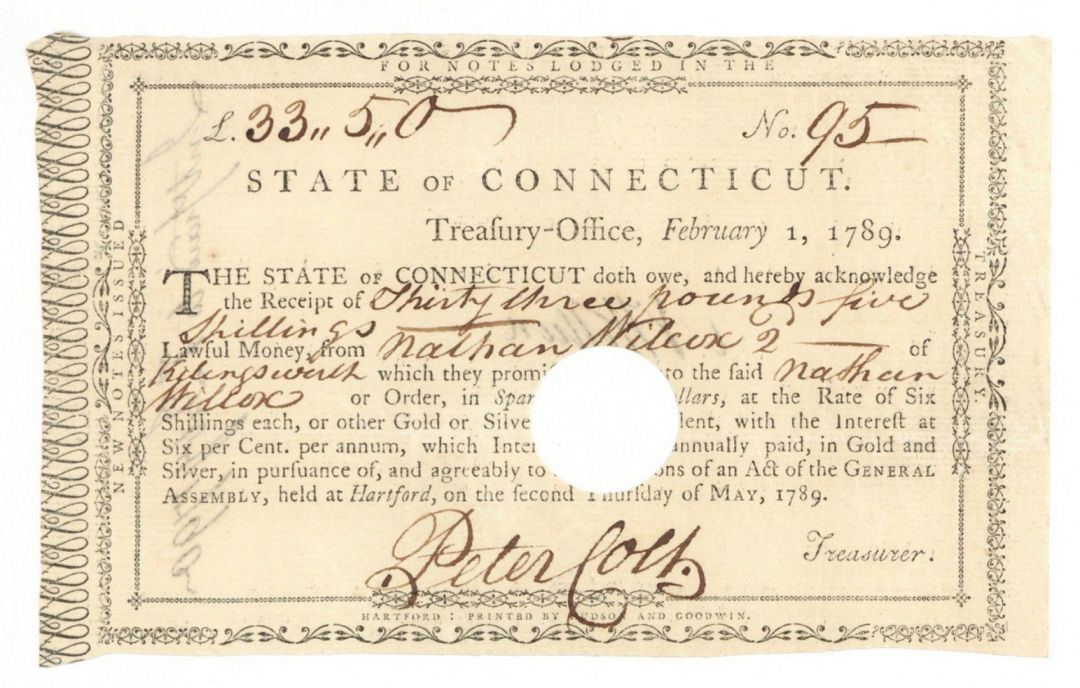 FOR NOTES LODGED IN THE
TREASURY.
NEW NOTES ISSUED
£. 33,, 5,, 0 No. 95
STATE OF CONNECTICUT.
Treaſury-Office, February 1, 1789.
THE STATE OF CONNECTICUT doth owe, and hereby acknowledge
the Receipt of Thirty three pounds five
Shillings
Lawful Money, from Nathan Wilcox 2 of
Kilingsworth which they to the ſaid Nathan
Wilcox or Order, in at the Rate of Six
Shillings each, or other Gold or with the Intereſt at
Six per Cent. per annum, which annually paid, in Gold and
Silver, in purſuance of, and agreeably to of an Act of the GENERAL
ASSEMBLY, held at Hartford, on the ſecond Thurſday of MAY, 1789.
Peter Colt Treasurer.
HARTFORD : PRINTED BY HUDSON AND GOODWIN.